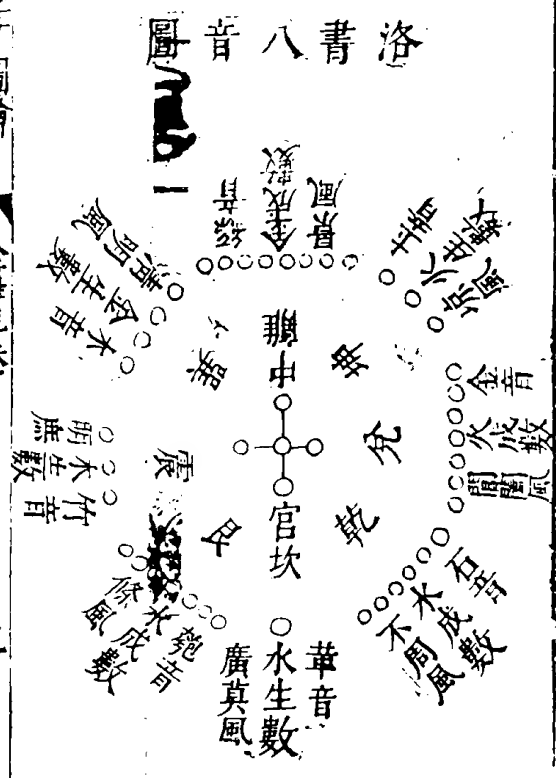 洛書八音圖
絲音
金成數
景風
土音
火生數
凉風
金音
火成數
閶闔風
石音
水成數
不周風
革音
水生數
廣莫風
匏音
木成數
條風
竹音
木生數
明庶
木音
金生數
清明風
離
坤
兌
乾
坎
艮
震
巽
中
官